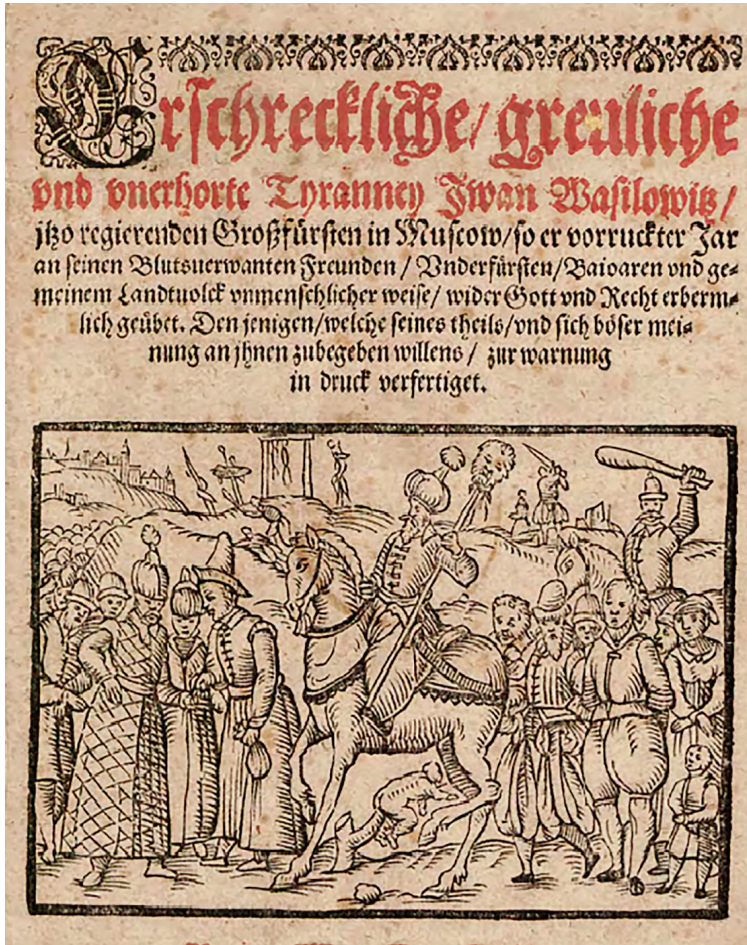 Erschreckliche/ greuliche
vnd vnerhorte Tyranney Iwan Wasilowitz/
jtzo regierenden Großfürsten in Muscow/so er vorruckter Jar
an seinen Blutsuerwanten Freunden / Vnderfürsten/Baioaren vnd ge⸗
meinem Landtuolck vnmenschlicher weise/ wider Gott vnd Recht erberm⸗
lich geübet. Den jenigen/welche seines theils/vnd sich böser mei⸗
nung an jhnen zubegeben willens / zur warnung
in druck verfertiget.